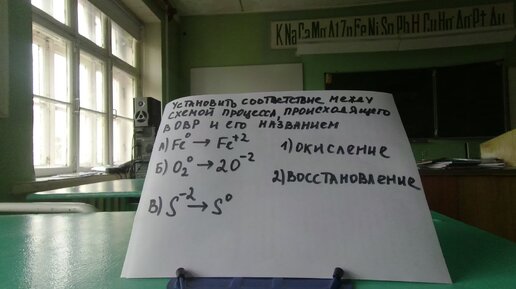 K Na Ca Mg Al Zn Fe Ni Sn Pb H Cu Hg Ag Pt Au
УСТАНОВИТЬ СООТВЕТСТВИЕ МЕЖДУ
СХЕМОЙ ПРОЦЕССА, ПРОИСХОДЯЩЕГО
В ОВР И ЕГО НАЗВАНИЕМ
А) Fe⁰ → Fe⁺² 1) ОКИСЛЕНИЕ
Б) O₂⁰ → 2O⁻² 2) ВОССТАНОВЛЕНИЕ
В) S⁻² → S⁰